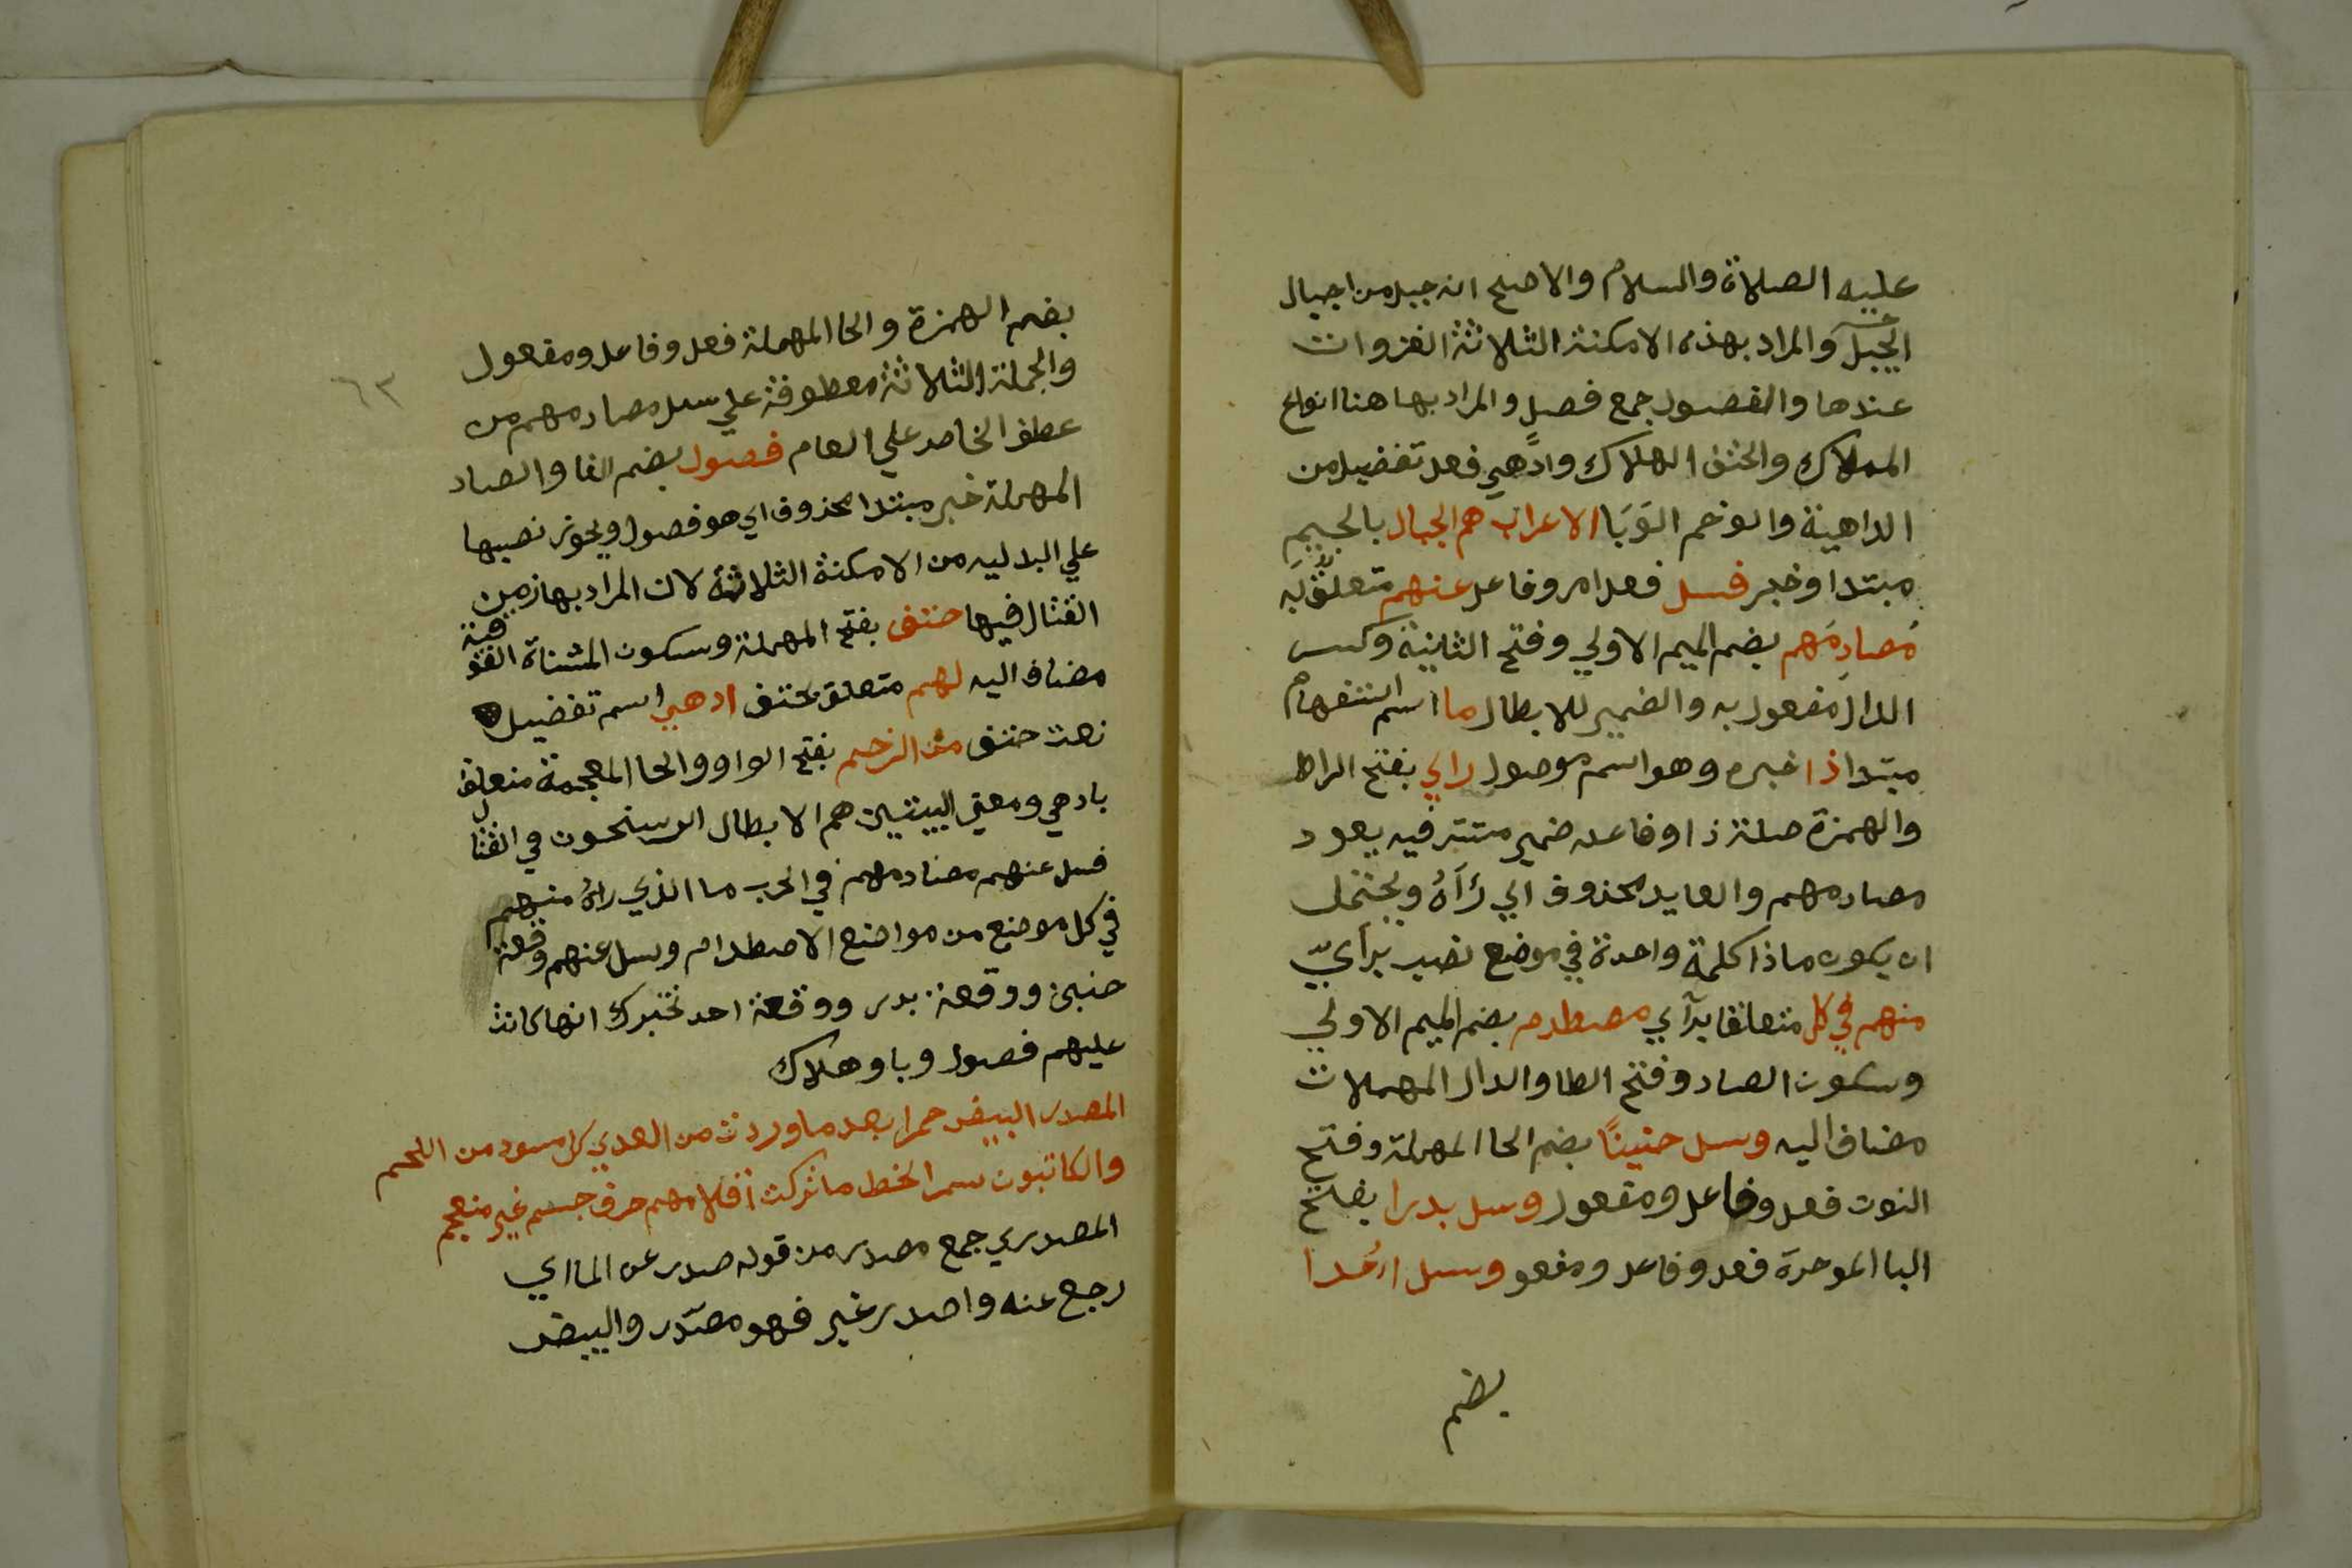 عليه الصلاة والسلام والاصح انه جبل من اجبال
الجبل والمراد بهذه الامكنة الثلاثة الغزوات
عندها والفصول جمع فصل والمراد بها هنا انواع
الهلاك والحتف الهلاك وادهي فعل تفضيل من
الداهية والوخم الوَبَا الاعراب هم الجبال بالجيم
مبتدا وخبر فسل فعل امر وفاعل عنهم متعلق به
مُصادِمَهم بضم الميم الاولي وفتح الثانية وكسر
الدال مفعول به والضمير للابطال ما اسم استفهام
مبتدا ذا خبره وهو اسم موصول راي بفتح الرا
والهمزة صلة ذا وفاعله ضمير متتر فيه يعود
مصادمهم والعايد محذوف اي رَآهُ ويحتمل
ان يكون ماذا كلمة واحدة في موضع نصب برأي
منهم في كل متعلقا برآي مصطدم بضم الميم الاولي
وسكون الصاد وفتح الطا والدال المهملات
مضاف اليه وسل حنينًا بضم الحا المهملة وفتح
النون فعل وفاعل ومفعول وسل بدرا بفتح
البا الموحدة فعل وفاعل ومفعو وسل احُدا
بضم
٦٣
بضم الهمزة والحا المهملة فعل وفاعل ومفعول
والجملة الثلاثة معطوفة علي سل مصادمهم من
عطف الخاص علي العام فصول بضم الفا والصاد
المهملة خبر مبتدا محذوف اي هو فصول ويجوز نصبها
علي البدليه من الامكنة الثلاثة لان المراد بها زمن
القتال فيها حتف بفتح المهملة وسكون المثناة الفوقية
مضاف اليه لهم متعلق بحتف ادهي اسم تفضيل
نعت حتف من الوخم بفتح الواو والحا المعجمة متعلق
بادهي ومعني البيتين هم الابطال الرسنحون في القتال
فسل عنهم مصادمهم في الحرب ما الذي راه منهم
في كل موضع من مواضع الاصطدام وسل عنهم وقعة
حنين ووقعة بدر ووقعة احد تخبرك انها كانت
عليهم فصول وبا وهلاك
المصدر البيض حمرا بعد ما وردت من العدي كل مسود من اللمم
والكاتبون سمر الخط ما تركت اقلامهم حرف جسم غير منعجم
المصدري جمع مصدر من قوله صدر عن الما اي
رجع عنه واصدر غير فهو مصدر والبيض